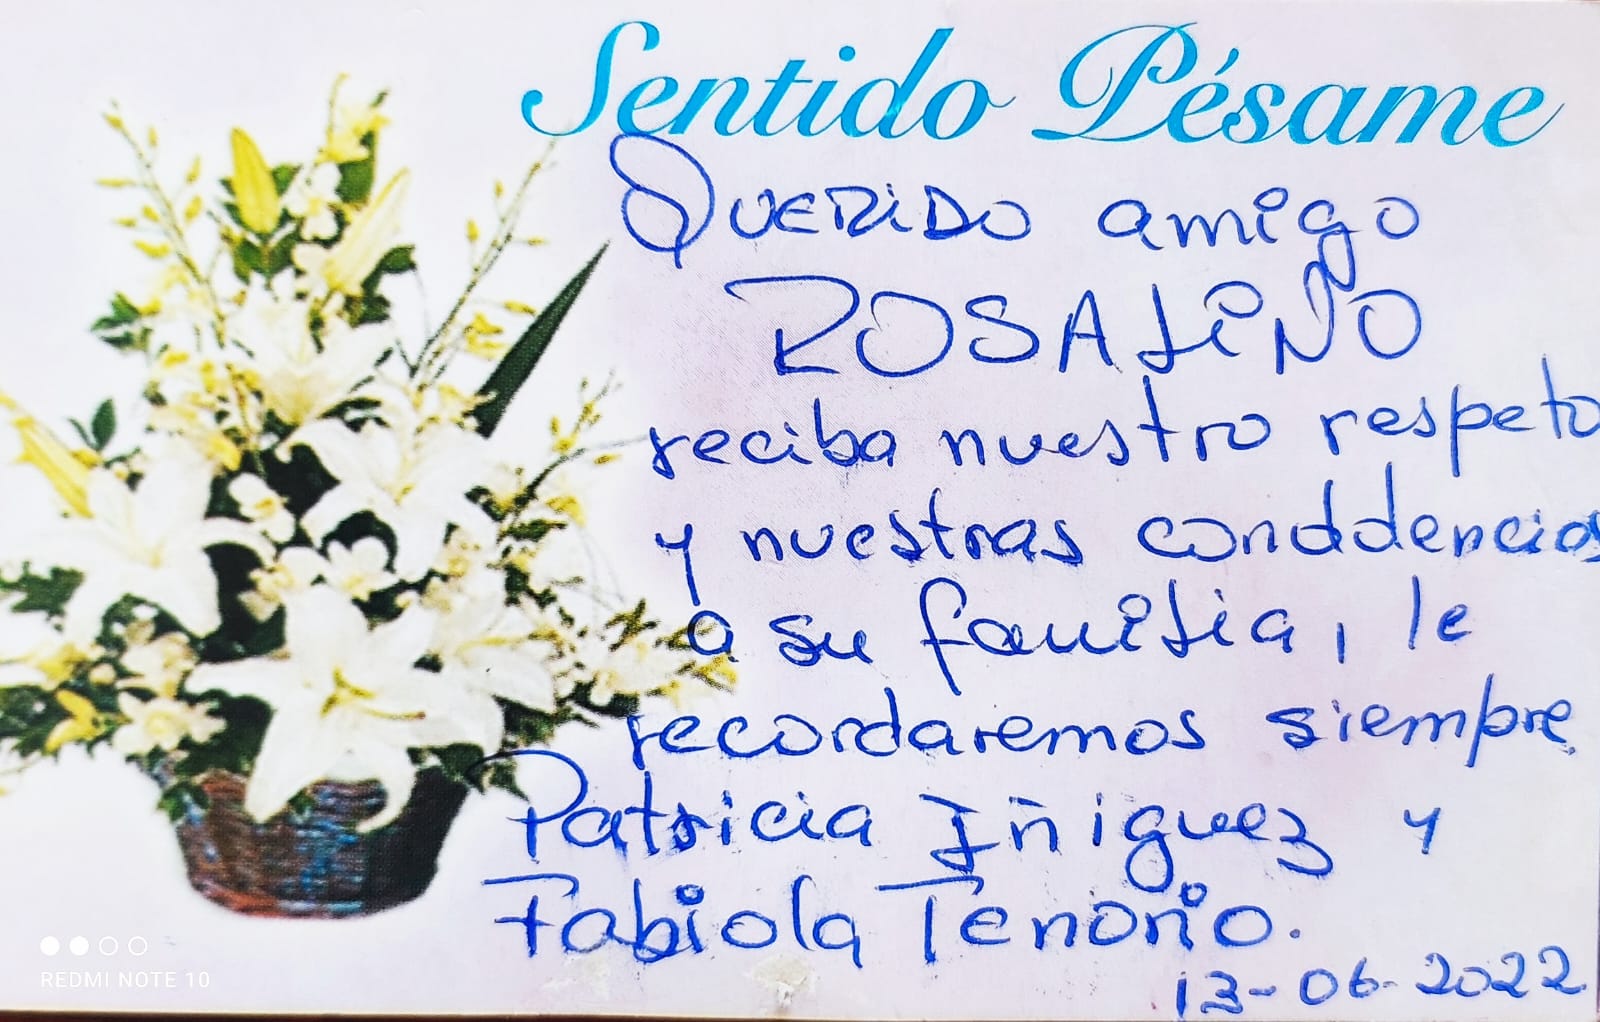 Sentido Pésame
QUERIDO amigo
ROSALINO
reciba nuestro respeto
y nuestras conddencias
a su familia, le
recordaremos siempre
Patricia Iñiguez y
Fabiola Tenorio.
13-06-2022
REDMI NOTE 10